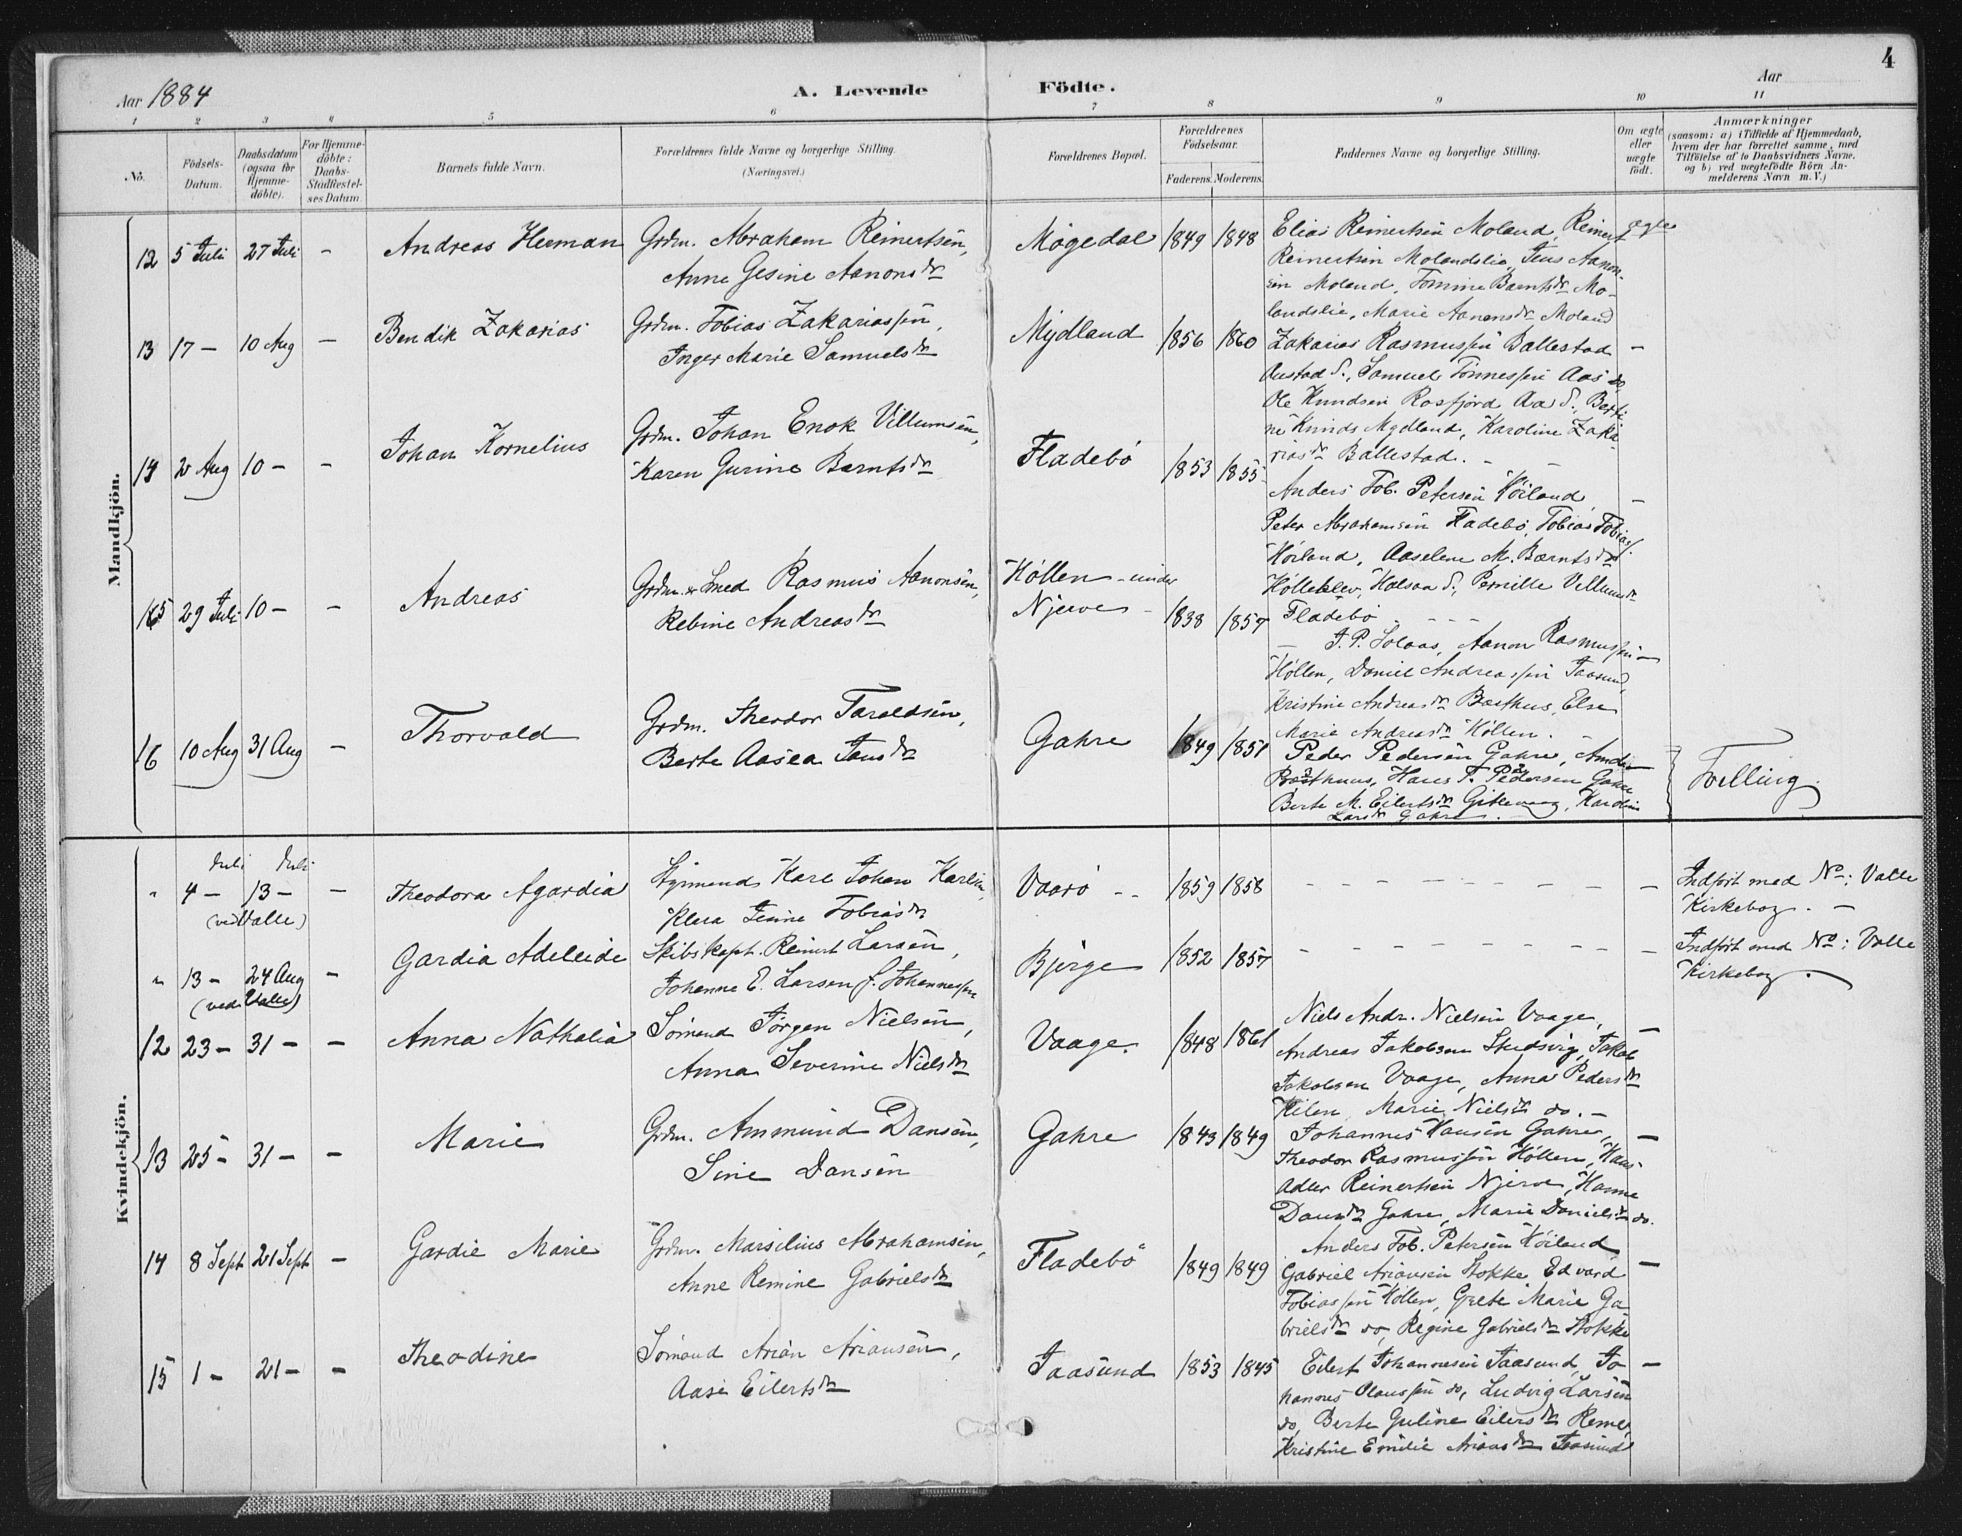 4
Aar 1884
A. Levende Födte.
Aar
1 2 3 4 5 6 7 8 9 10 11
No.
Födsels-Datum.
Daabsdatum (ogsaa for Hjemme-döbte).
For Hjemme-döbte: Daabs-Stadfæstel-ses Datum.
Barnets fulde Navn.
Forældrenes fulde Navne og borgerlige Stilling.
(Næringsvei.)
Forældrenes Bopæl.
Forældrenes Födselsaar.
Faderens. Moderens.
Faddernes Navne og borgerlige Stilling.
Om ægte eller uægte födt.
Anmærkninger
(saasom: a) i Tilfælde af Hjemmedaab,
hvem der har forrettet samme, med
Tilföielse af to Daabsvidners Navne.
og b) ved uægtefödte Börn An-
melderens Navn m. V.)
Mandkjön.
12 5 Juli 27 Juli - Andreas Herman
Grdm. Abraham Reinertsen,
Anne Gesine Aanonsdr
Møgedal 1849 1848
Elias Reinertsen Moland, Reinert
Reinertsen Molandslia, Jens Aanon-
sen Moland, Tomine Berntsdr Mo-
landslia, Marie Aanensdr Moland
ægte
13 17 - 10 Aug - Bendik Zakarias
Grdm. Tobias Zakariassen,
Inger Marie Samuelsdr
Mydland 1856 1860
Zakarias Rasmussen Ballestad
Austad S., Samuel Tønnessen Aas do
Ole Knudsen Rosfjord Aa S., Berti
ne Knuds Mydland, Karoline Zaka-
riasdr Ballestad. -
-
14 2 Aug 10 - - Johan Kornelius
Grdm. Johan Enok Villumsen,
Karen Gurine Berntsdr
Fladebö 1853 1855
Anders Tob. Petersen Høiland
Peter Abrahamsen Fladebø, Tobias Tobiass.
Høiland, Aaselene M. Berntsdr
Hølleklev, Halsaa S., Pernille Villumsdr
Fladebø - - -
-
15 29 Juli 10 - - Andreas
Grdm. & Smed Rasmus Aanonsen,
Rebine Andreasdr
Høllen - under
Njerve - 1838 1857
- J. P. Solaas, Aanon Rasmussen
Høllen, Daniel Andreassen Jaasund,
Kristine Andreasdr Baasthus, Else
Marie Andreasdr Høllen.
-
16 10 Aug 31 Aug - Thorvald
Grdm. Theodor Taraldsen,
Berte Aasea Jansdr
Gahre 1849 1851
Peder Pedersen Gahre,
Hans P. Pedersen Gahre
Berte M. Eilertsdr Gitlevaag, Karoline
Larsdr Gahre.
Tvelling
Kvindekjön.
Juli Juli
" 4 - 13 - - Theodora Agardia
(ved Valle)
Styrmand Karl Johan Karlsen,
Klara Jesine Tobiasdr
Vaarö - - 1859 1858
- - - - - - - - -
Indført med No: Valle
Kirkebog. -
" 13 - 24 Aug - Gardia Adeleide
(ved Valle)
Skibskapt. Reinert Larsen,
Johanne E. Larsen f. Johannessen
Bjerge 1852 1857
- - - - - - - - -
Indført med No: Valle
Kirkebog.
12 23 - 31 - - Anna Nathalia
Sømand Jørgen Nielsen,
Anna Severine Nielsdr
Vaage. 1848 1861
Niels Andr. Nielsen Vaage,
Andreas Jakobsen Studsvig, Jakob
Jakobsen Vaage, Anna Pedersdr
Kilen, Marie Nielsdr do. -
-
13 25 - 31 - - Marie
Grdm. Ammund Dansen,
Sine Dansen
Gahre 1843 1849
Johannes Hansen Gahre,
Theodor Rasmussen Høllen, Hans
Adler Reinertsen Njerve, Hanne
Dansdr Gahre, Marie Danielsdr do.
-
14 8 Sept 21 Sept - Gardie Marie
Grdm. Marsilius Abrahamsen,
Anne Remine Gabrielsdr
Fladebö 1849 1849
Anders Tob. Petersen Høiland
Gabriel Ariansen Stokke, Edvard
Tobiassen Høllen, Grete Marie Ga-
brielsdr do, Regine Gabrielsdr Stokke
-
15 1 - 21 - - Theodine
Sømand Arian Ariansen,
Aase Eilertsdr
Jaasund 1853 1845
Eilert Johannesen Jaasund, Jo-
hannes Olaussen do, Ludvig Larsen
do, Berte Guline Eilersdr Reme,
Kristine Emilie Ariansdr Jaasund
-